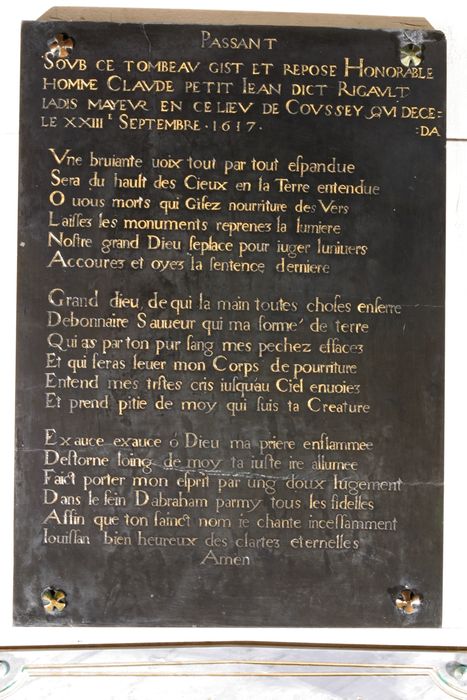 PASSANT
SOVB CE TOMBEAV GIST ET REPOSE HONORABLE
HOMME CLAVDE PETIT IEAN DICT RIGAVLT
IADIS MAYEVR EN CE LIEV DE COVSSEY QVI DECE=
LE XXIII^E SEPTEMBRE · 1617 · =DA
Vne bruiante uoix tout par tout eſpandue
Sera du hault des Cieux en la Terre entendue
O uous morts qui Giſez nourriture des Vers
Laiſſez les monuments reprenez la lumiere
Noſtre grand Dieu ſeplace pour iuger luniuers
Accourez et oyez la ſentence derniere
Grand dieu, de qui la main toutes choſes enſerre
Debonnaire Sauueur qui ma forme' de terre
Qui as par ton pur ſang mes pechez effacez
Et qui feras leuer mon Corps de pourriture
Entend mes triſtes cris iuſquau Ciel enuoiez
Et prend pitie de moy qui ſuis ta Creature
Exauce exauce ó Dieu ma priere enflammee
Deſtorne loing de moy ta iuſte ire allumee
Faict porter mon eſprit par ung doux Iugement
Dans le ſein Dabraham parmy tous les fidelles
Affin que ton ſainct nom ie chante inceſſamment
Iouiſſan bien heureux des clartez eternelles
Amen